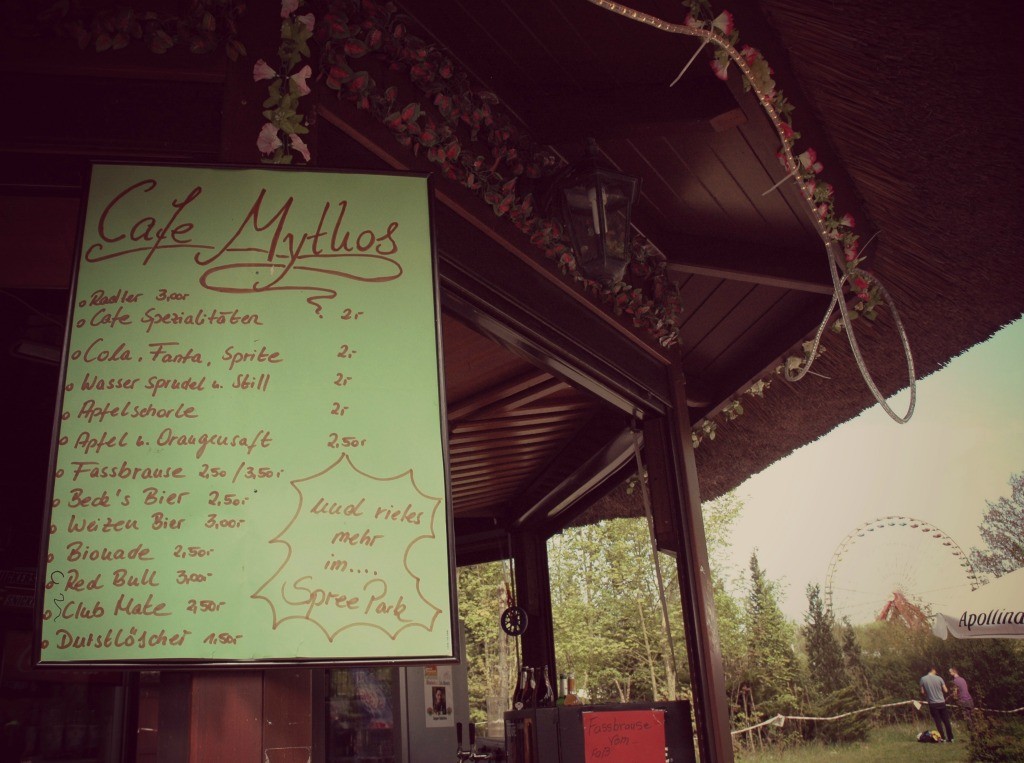 Cafe Mythos
Radler 3,00r
Cafe Spezialitäten 2r
Cola, Fanta, Sprite 2,-
Wasser Sprudel u. Still 2r
Apfelschorle 2r
Apfel u. Orangensaft 2,50r
Fassbrause 2,50 / 3,50r
Beck's Bier 2,50r
Weizen Bier 3,00r
Bionade 2,50r
Red Bull 3,00r
Club Mate 2,50r
Durstlöscher 1,50r
und vieles
mehr
im....
Spree Park
Apollina
Fassbrause
vom
Faß